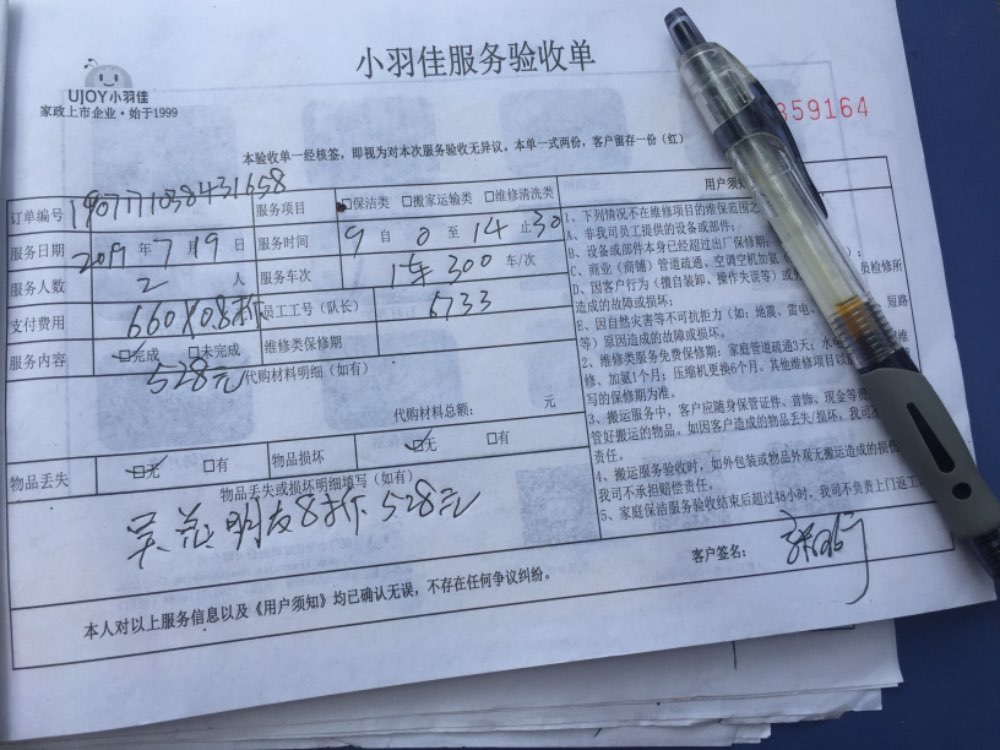 小羽佳服务验收单
UJOY小羽佳
家政上市企业·始于1999
359164
本验收单一经核签,即视为对本次服务验收无异议。本单一式两份,客户留存一份(红)
订单编号 1907171038431658 服务项目 □保洁类 □搬家运输类 □维修清洗类
服务日期 2019 年 7 月 19 日 服务时间 9 自 0 至 14 止 30
服务人数 2 人 服务车次 1车 300 车/次
支付费用 660×0.8折 员工工号(队长) 6733
服务内容 ☑完成 □未完成 维修类保修期
528元 代购材料明细(如有)
代购材料总额: 元
物品丢失 ☑无 □有 物品损坏 ☑无 □有
物品丢失或损坏明细填写(如有)
朋友8折 528元
用户须知
1、下列情况不在维修项目的维保范围之
A、非我司员工提供的设备或部件;
B、设备或部件本身已经超过出厂保修期;
C、商业(商铺)管道疏通、空调空机加氨
D、因客户行为(擅自装卸、操作失误等)或 员检修所
造成的故障或损坏;
E、因自然灾害等不可抗拒力(如:地震、雷电、 短路
等)原因造成的故障或损坏。
2、维修类服务免费保修期:家庭管道疏通3天;水电 维
修、加氨1个月;压缩机更换6个月。其他维修项目以
写的保修期为准。
3、搬运服务中,客户应随身保管证件、首饰、现金等贵
管好搬运的物品。如因客户造成的物品丢失/损坏,我司不
责任。
4、搬运服务验收时,如外包装或物品外观无搬运造成的损伤
我司不承担赔偿责任。
5、家庭保洁服务验收结束后超过48小时,我司不负责上门返工
客户签名:
本人对以上服务信息以及《用户须知》均已确认无误,不存在任何争议纠纷。